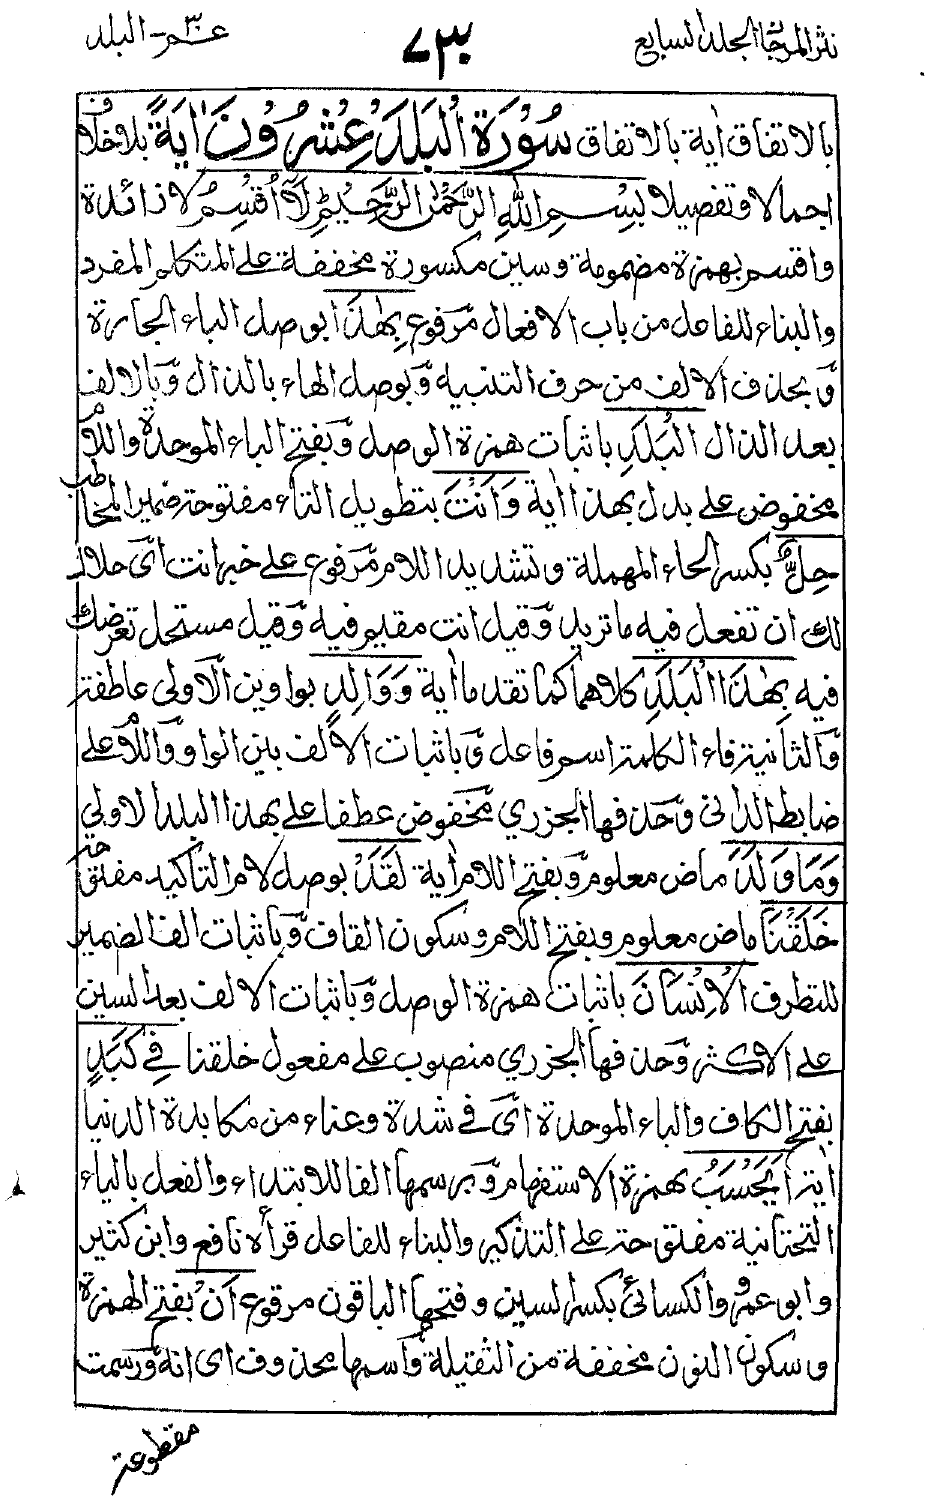 نثر المرجان الجلد السابع
٧٣٠
عم ٣٠ - البلد
بالاتفاق اٰية بالاتفاق سُوْرَةُ الْبَلَدِ عِشْرُوْنَ اٰيَةً بلا خلاف
اجمالا وتفصيلا بِسْمِ اللّٰهِ الرَّحْمٰنِ الرَّحِيْمِ لَاۤ اُقْسِمُ لا زائدة
واقسم بهمزة مضمومة وسين مكسورة مخففة على المتكلم المفرد
والبناء للفاعل من باب الافعال مرفوع بِهٰذَا بوصل الباء الجارة
وَبحذف الالف من حرف التنبيه وَبوصل الهاء بالذال وَبالالف
بعد الذال الْبَلَدِ باثبات همزة الوصل وَبفتح الباء الموحدة واللام
مخفوض على بدل بهذا اٰية وَاَنْتَ بتطويل التاء مفتوحة ضمير المخاطب
حِلٌّ بكسر الحاء المهملة وتشديد اللام مرفوع على خبر انت اى حلال
لك ان تفعل فيه ما تريد وَقيل انت مقيم فيه وَقيل مستحل تعرضك
فيه بِهٰذَا الْبَلَدِ كلاهما كما تقدما اٰية وَوَالِدٍ بواوين الاولى عاطفة
وَالثانية فاء الكلمة اسم فاعل وَباثبات الالف بين الواو واللام على
ضابط الدانى وَحذفها الجزري مخفوض عطفا على بهذا البلد الاولى
وَمَا وَلَدَ ماض معلوم وَبفتح اللام اٰية لَقَدْ بوصل لام التأكيد مفتوحة
خَلَقْنَا ماض معلوم وبفتح اللام وسكون القاف وَباثبات الف الضمير
للتطرف الْاِنْسَانَ باثبات همزة الوصل وَباثبات الالف بعد السين
على الاكثر وَحذفها الجزري منصوب على مفعول خلقنا فِيْ كَبَدٍ
بفتح الكاف والباء الموحدة اى فى شدة وعناء من مكابدة الدنيا
اٰية اَيَحْسَبُ بهمزة الاستفهام وَبرسمها الفا للابتداء والفعل بالياء
التحتانية مفتوحة على التذكير والبناء للفاعل قرأه نافع وابن كثير
وابو عمرو والكسائى بكسر السين وفتحها الباقون مرفوع اَنْ بفتح الهمزة
وسكون النون مخففة من الثقيلة وَاسمها محذوف اى انه وَرسمت
مقطوعة